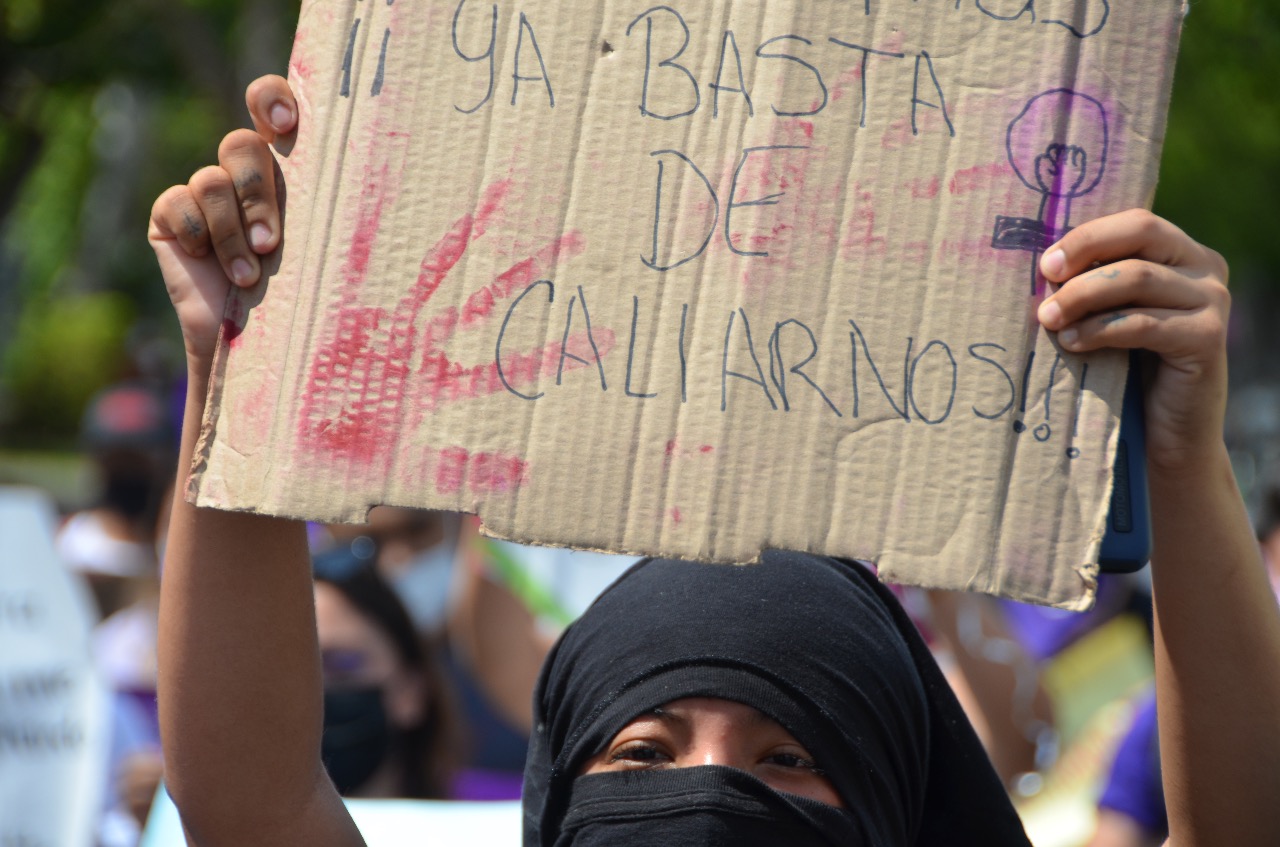 ¡¡ YA BASTA
DE
CALIARNOS!!!